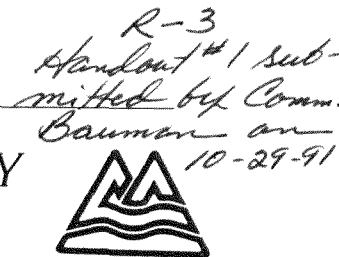 R-3
Handout #1 sub-
mitted by Comm.
Bauman on
10-29-91
Y